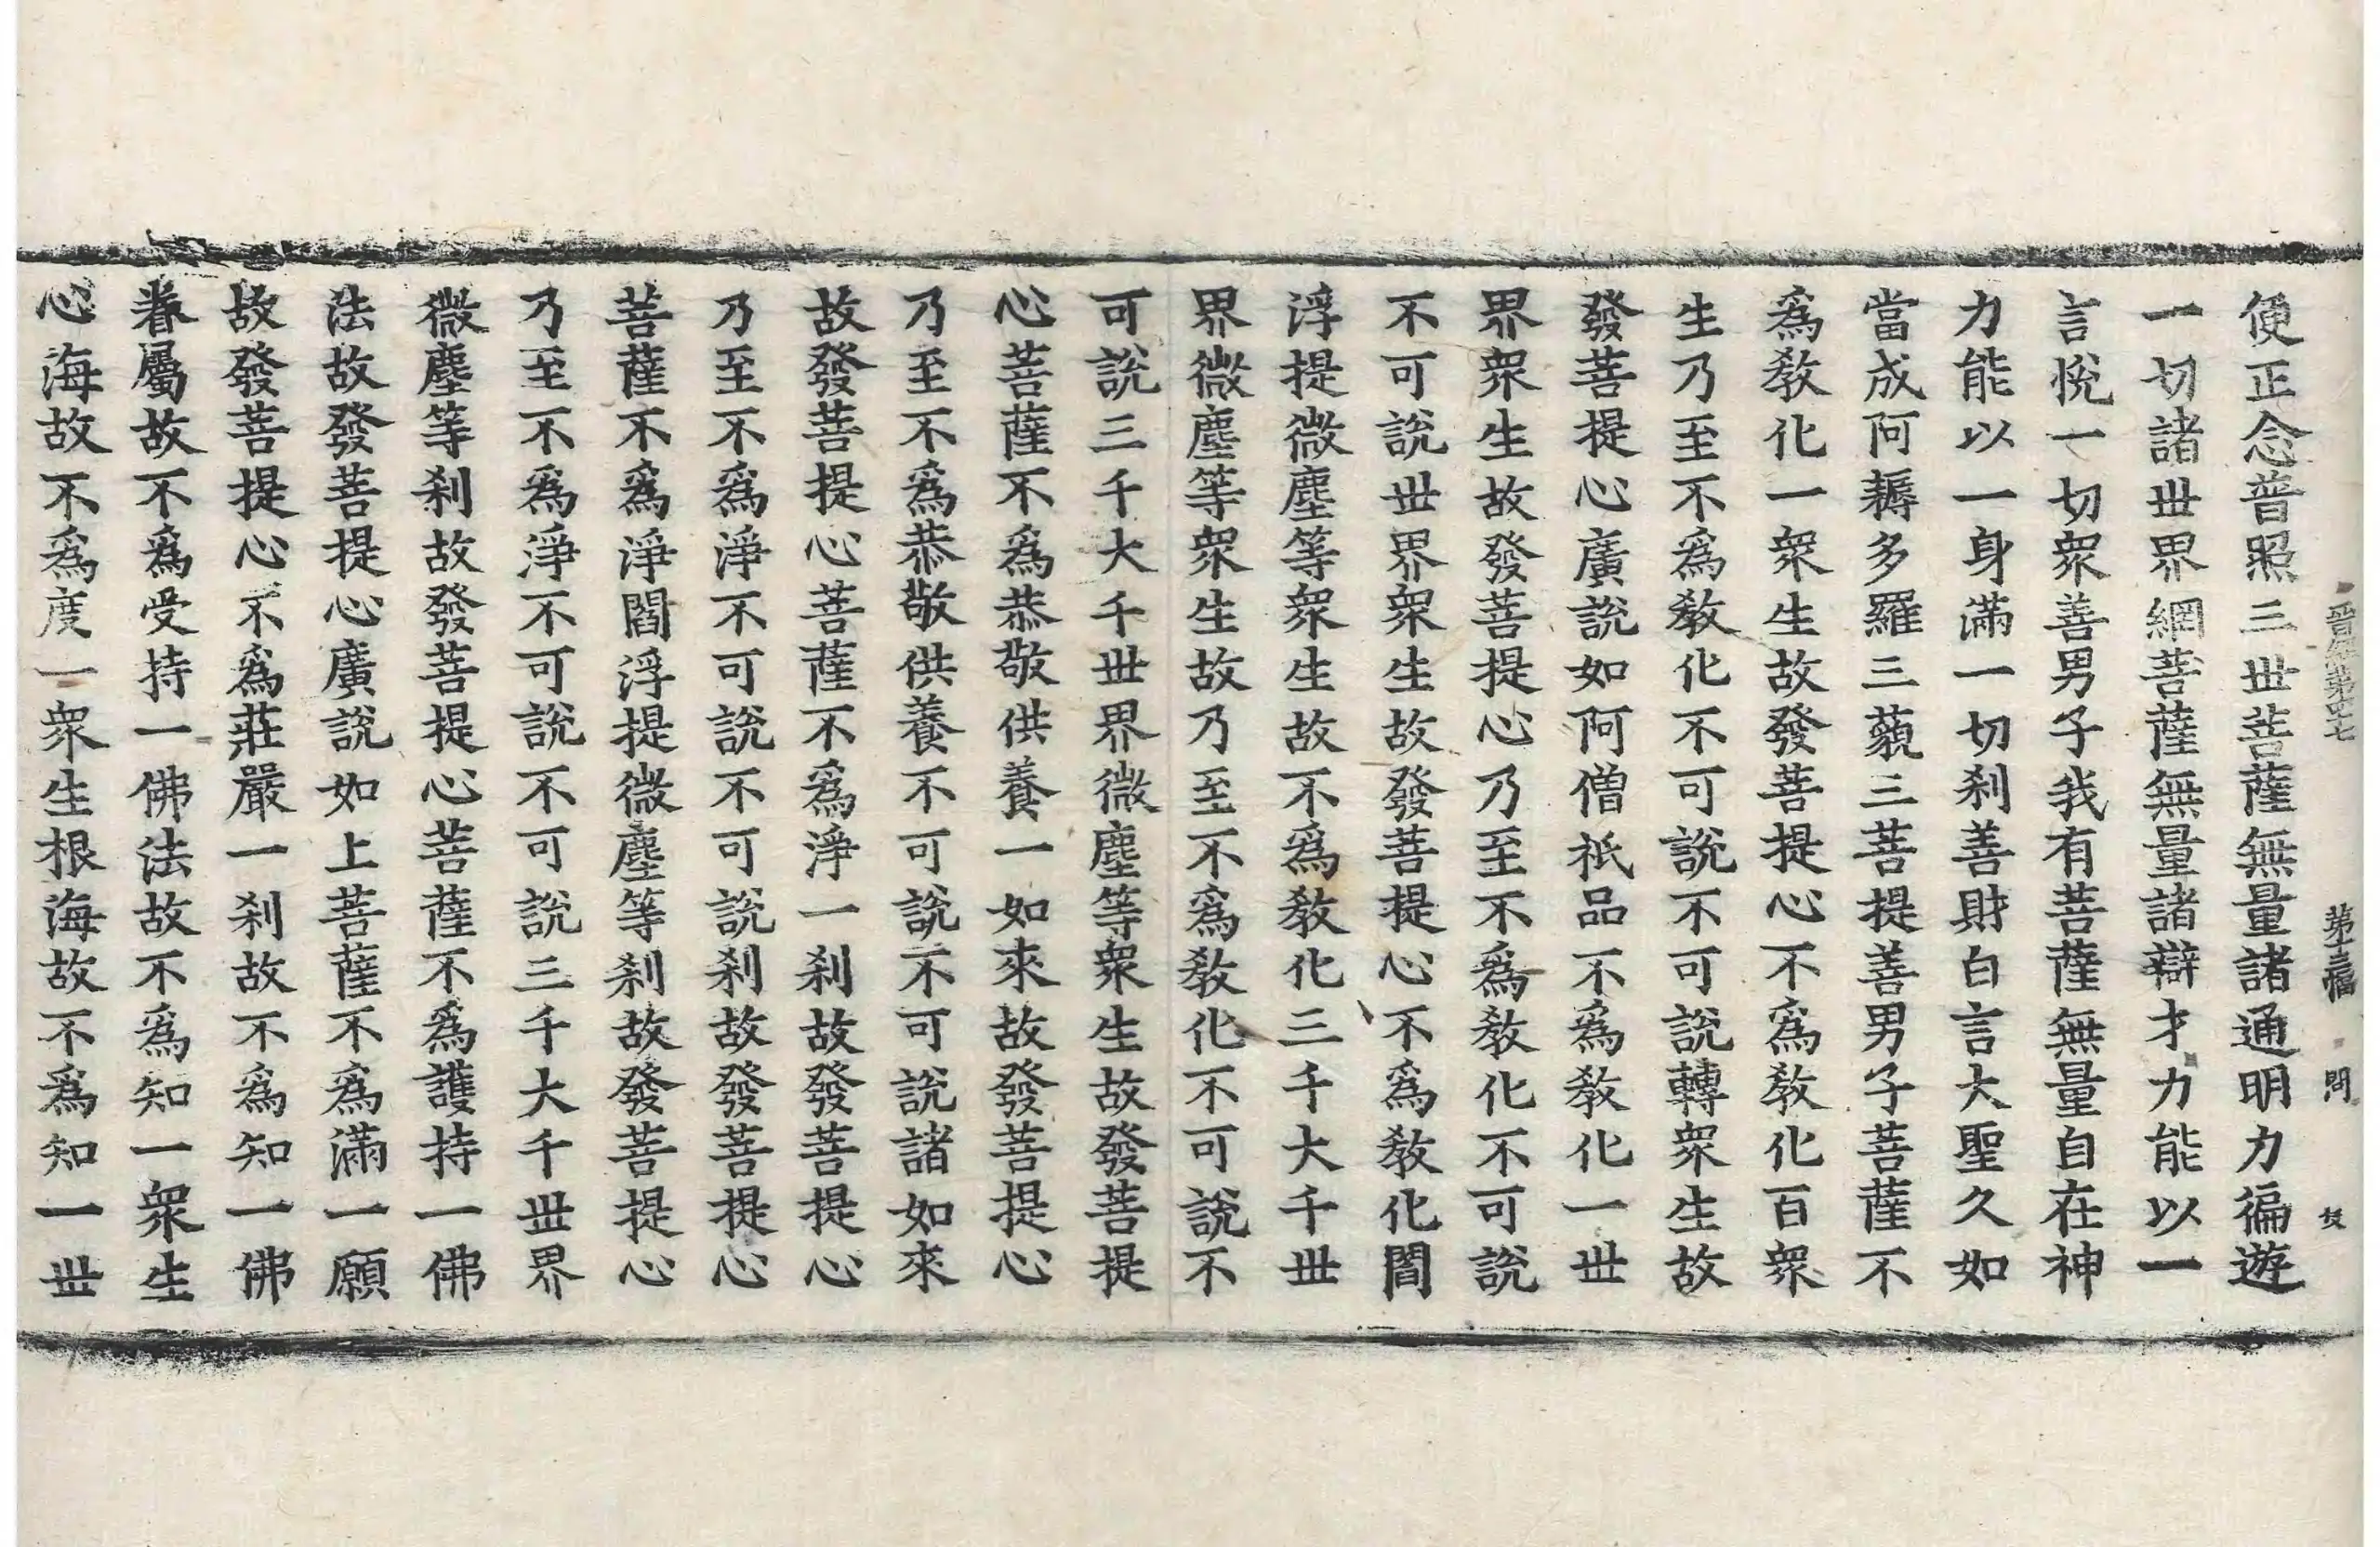 晉經第四七 第十三幅 問
便正念普照三世菩薩無量諸通明力徧遊
一切諸世界網菩薩無量諸辯才力能以一
言悅一切衆善男子我有菩薩無量自在神
力能以一身滿一切刹善財白言大聖久如
當成阿耨多羅三藐三菩提善男子菩薩不
爲敎化一衆生故發菩提心不爲敎化百衆
生乃至不爲敎化不可說不可說轉衆生故
發菩提心廣說如阿僧祇品不爲敎化一世
界衆生故發菩提心乃至不爲敎化不可說
不可說世界衆生故發菩提心不爲敎化閻
浮提微塵等衆生故不爲敎化三千大千世
界微塵等衆生故乃至不爲敎化不可說不
可說三千大千世界微塵等衆生故發菩提
心菩薩不爲恭敬供養一如來故發菩提心
乃至不爲恭敬供養不可說不可說諸如來
故發菩提心菩薩不爲淨一刹故發菩提心
乃至不爲淨不可說不可說刹故發菩提心
菩薩不爲淨閻浮提微塵等刹故發菩提心
乃至不爲淨不可說不可說三千大千世界
微塵等刹故發菩提心菩薩不爲護持一佛
法故發菩提心廣說如上菩薩不爲滿一願
故發菩提心不爲莊嚴一刹故不爲知一佛
眷屬故不爲受持一佛法故不爲知一衆生
心海故不爲度一衆生根海故不爲知一世